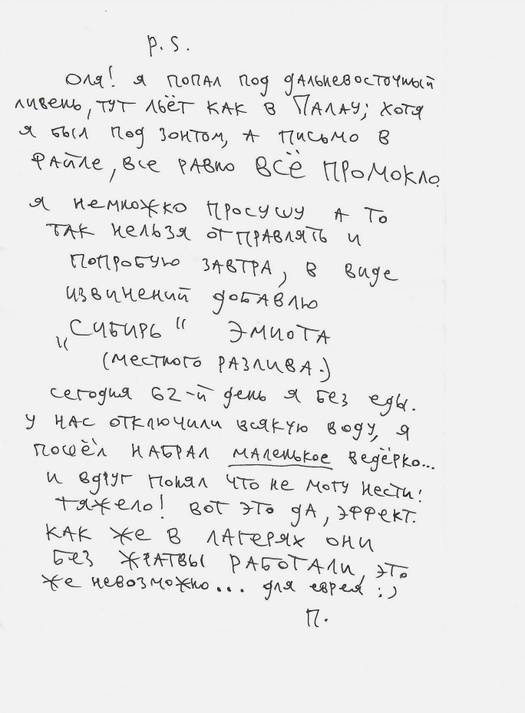 P.S.
Оля! я попал под дальневосточный
ливень, тут льёт как в Палау; хотя
я был под зонтом, а письмо в
файле, все равно ВСЁ ПРОМОКЛО.
я немножко просушу а то
так нельзя отправлять и
попробую завтра, в виде
извинений добавлю
"Сибирь" Эмиота
(местного разлива.)
сегодня 62-й день я без еды.
у нас отключили всякую воду, я
пошёл набрал маленькое ведёрко...
и вдруг понял что не могу нести!
тяжело! вот это да, эффект.
как же в лагерях они
без жратвы работали, это
же невозможно... для еврея :)
П.